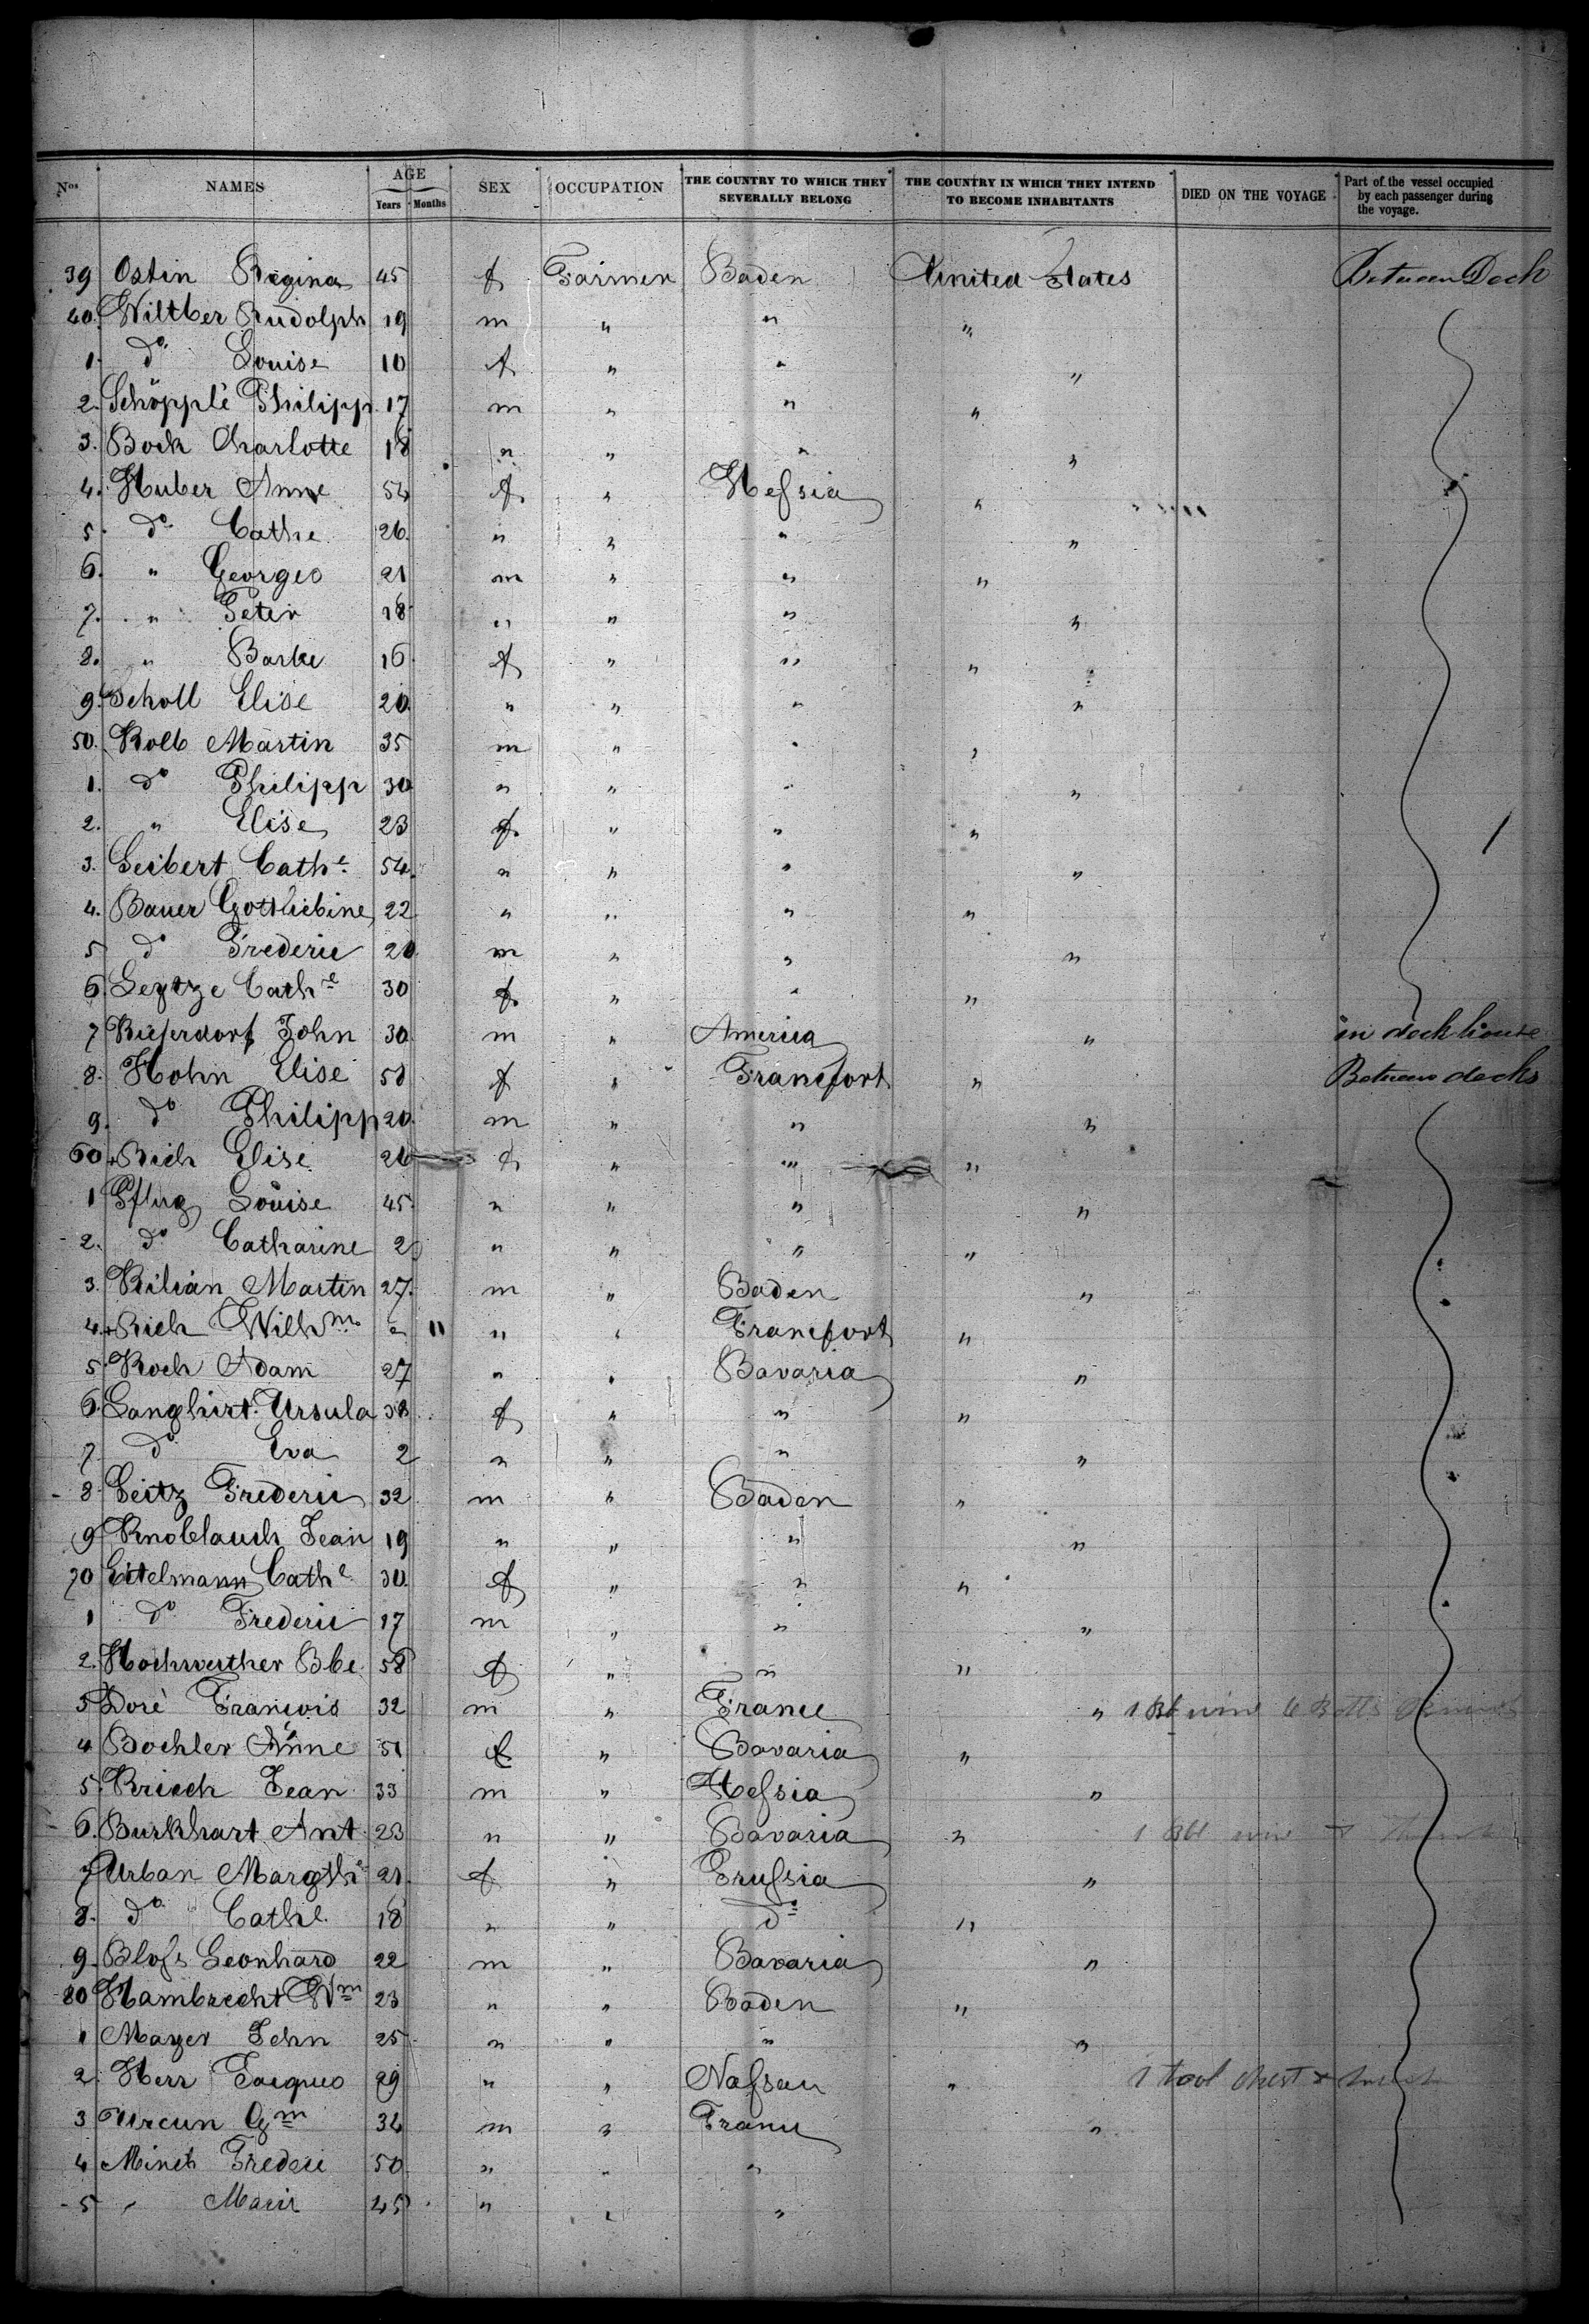 Nos NAMES AGE Years Months SEX OCCUPATION THE COUNTRY TO WHICH THEY SEVERALLY BELONG THE COUNTRY IN WHICH THEY INTEND TO BECOME INHABITANTS DIED ON THE VOYAGE Part of the vessel occupied by each passenger during the voyage.
39 Ostin Regina 45 f Farmer Baden United States Between Deck
40. Wiltber Rudolph 19 m " " "
1. do Louise 10 f " " "
2. Schöpple Philipp 17 m " " "
3. Bock Charlotte 18 " " " "
4. Huber Anne 54 f " Hessia "
5. do Cathe 26 " " " "
6. " Georges 21 m " " "
7. " Peter 18 " " " "
8. " Barbe 16 f " " "
9. Scholl Elise 20 " " " "
50. Kolb Martin 35 m " " "
1. do Philipp 30 " " " "
2. " Elise 23 f " " "
3. Seibert Cathe 54 " " " "
4. Bauer Gottliebine 22 " " " "
5 do Frederic 20 m " " "
6. Leytze Cathe 30 f " " "
7 John 30 m " America " in deck house
8. Hohn Elise 50 f " Francfort " Between decks
9. do Philipp 20 m " " "
60 + Rich Elise 26 f " " "
1 Pflug Louise 45 " " " "
2. do Catharine 20 " " " "
3. Kilian Martin 27 m " Baden "
4. + Rich Wilhm " 11 " " Francfort "
5. Koch Adam 27 " " Bavaria "
6. Langhirt Ursula 38 f " " "
7 do Eva 2 " " " "
8. Seitz Frederic 32 m " Baden "
9 Knoblauch Jean 19 " " " "
70 Eitelmann Cathe 30 f " " "
1 do Frederic 17 m " " "
2. Hochwerther Bbe. 58 f " " "
3 Doré Francois 32 m " France " 1 Bbl wine 6 Botts
4 Bochler Anne 51 f " Bavaria "
5. Krisch Jean 33 m " Hessia "
6. Burkhart Ant 23 " " Bavaria " 1 Bbl wine
7 Urban Margthe 21 f " Prussia "
8. do Cathe 18 " " do "
9. Bloss Leonhard 22 m " Bavaria "
80 Hambrecht Wm 23 " " Baden "
1 Mayer John 25 " " " "
2 Herr Jacques 29 " " Nassau " 1 tool chest &
3 Urcun Gm 34 m " France "
4 Minet Frederic 50 " " "
5 " Marie 45 " " "